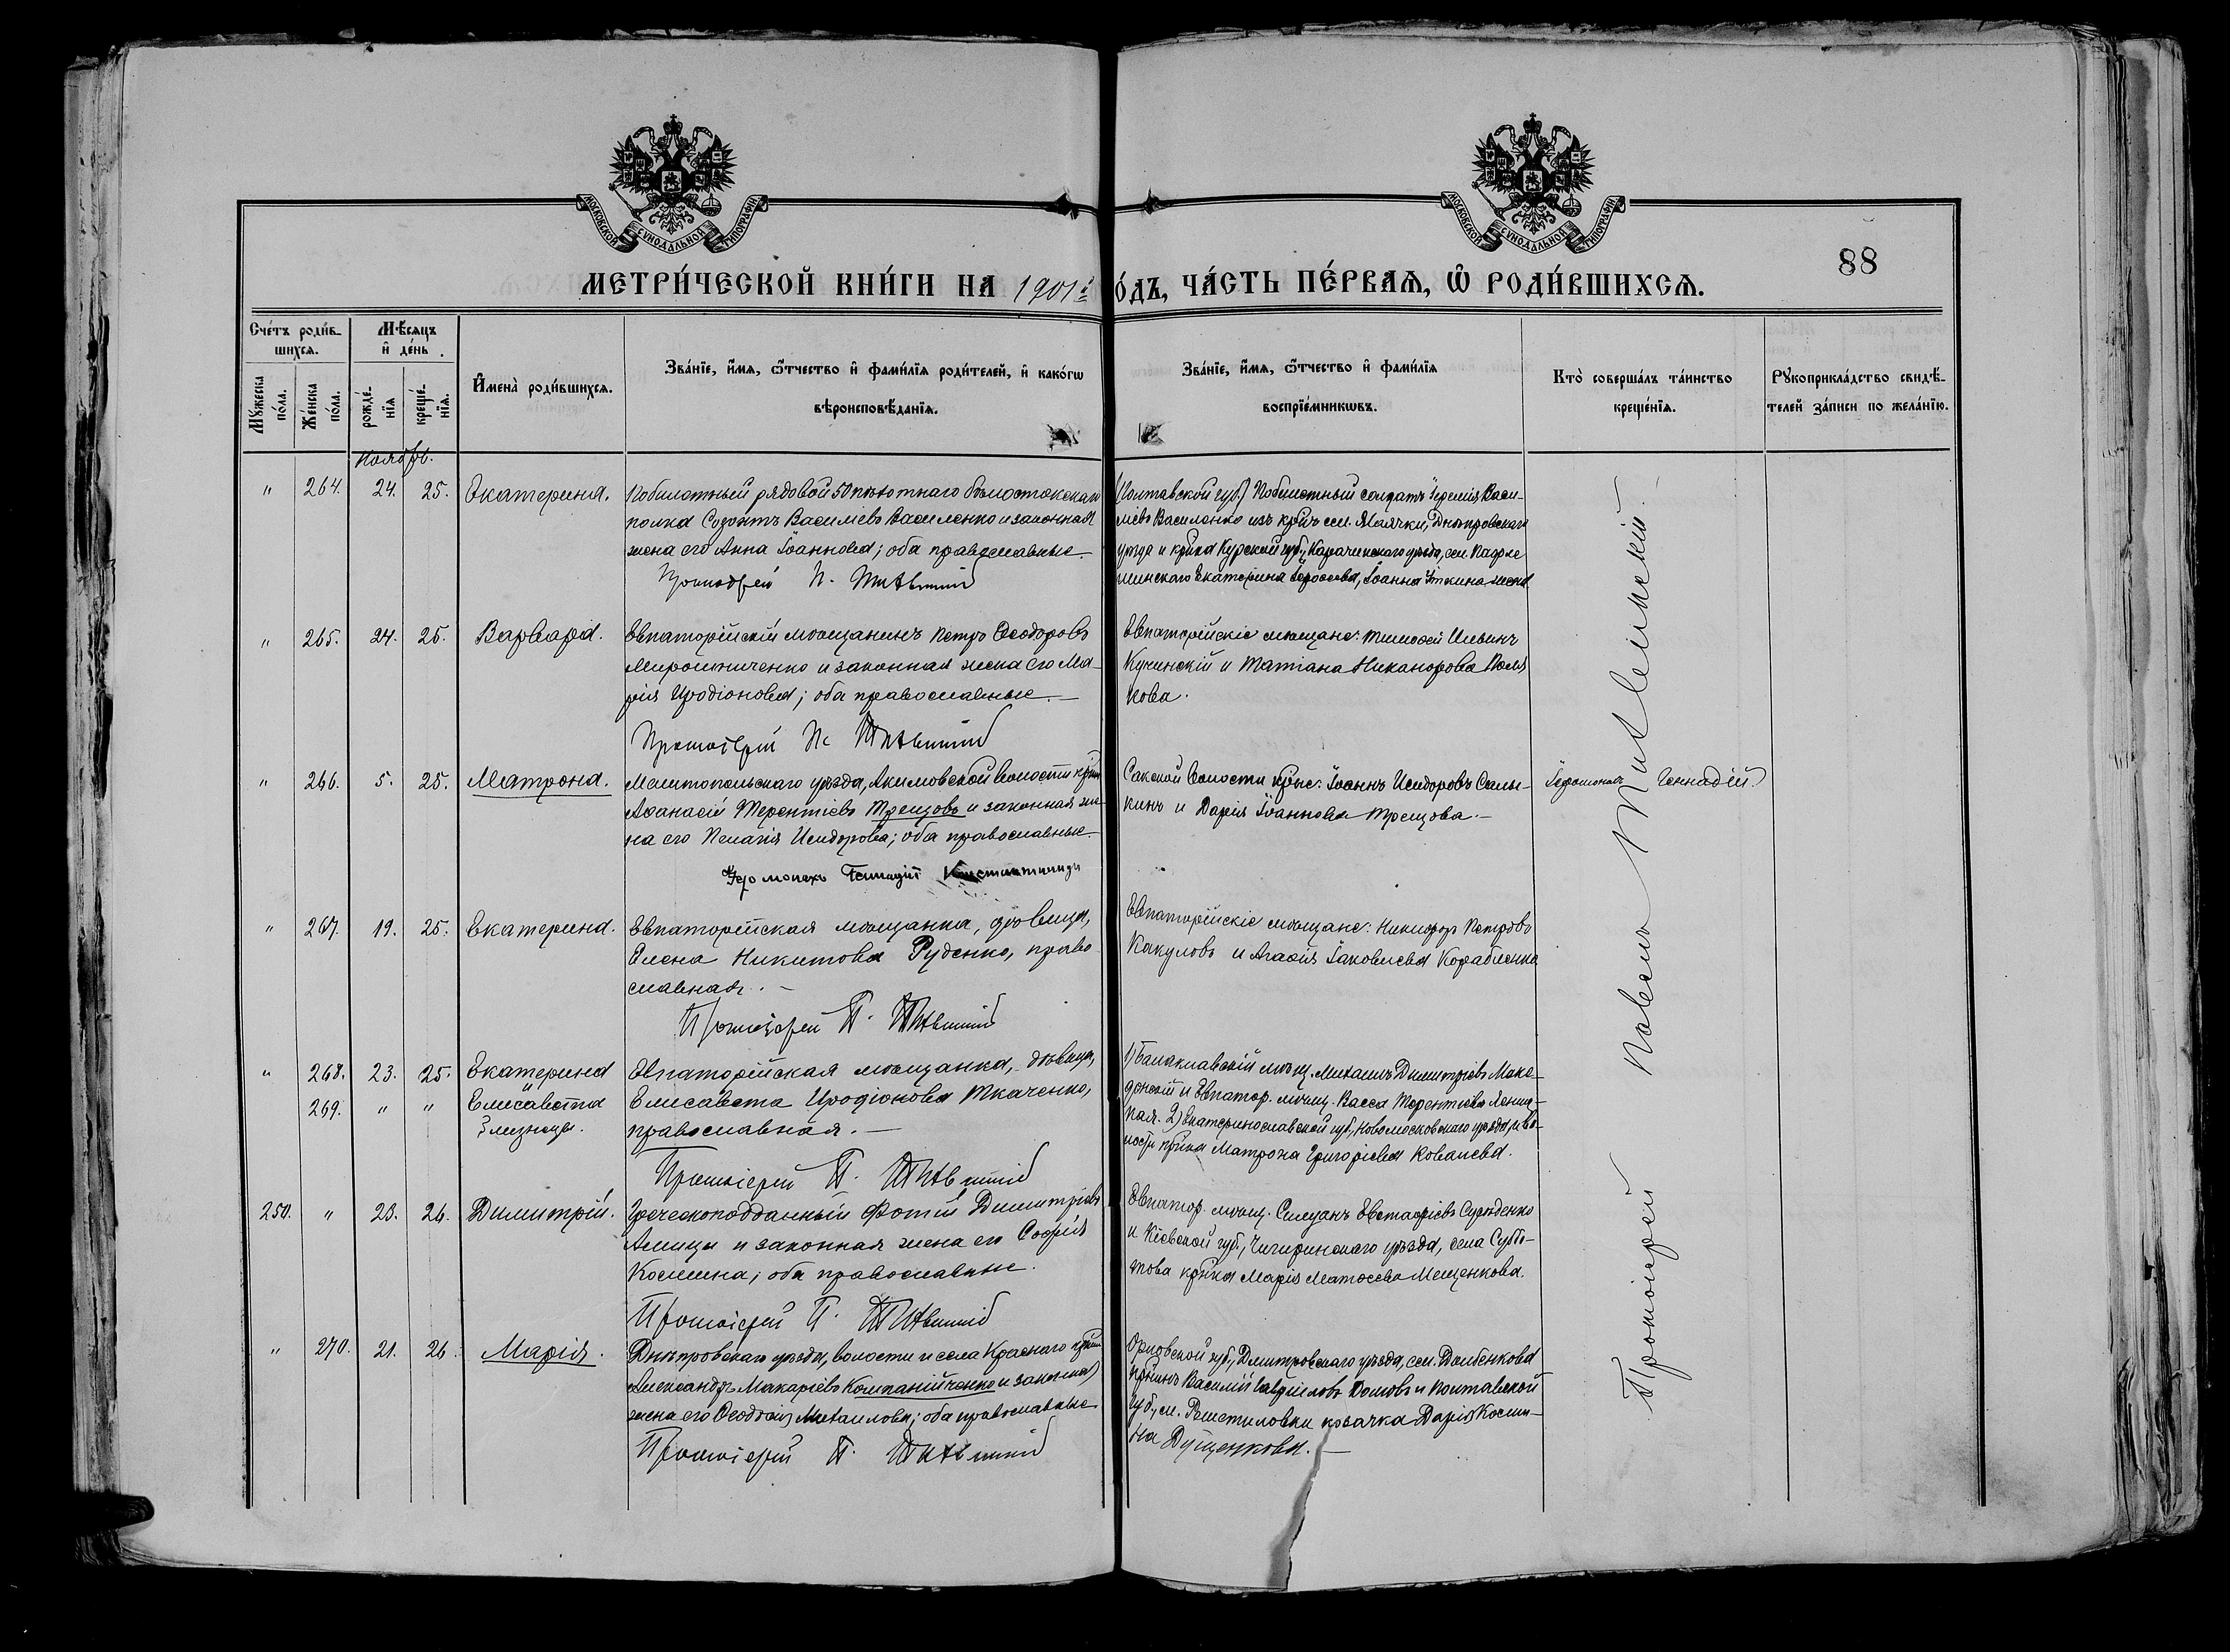 МОСКОВСКОЙ СѴНОДАЛЬНОЙ ТИПОГРАФІИ
МОСКОВСКОЙ СѴНОДАЛЬНОЙ ТИПОГРАФІИ
88
МЕТРИ́ЧЕСКОЙ КНИ́ГИ НА 1901й
О́ДЪ, ЧА́СТЬ ПЕ́РВАѦ, Ѡ҆ РОДИ́ВШИХСѦ.
Сче́тъ роди́в-
шихсѧ.
Мꙋ́жеска по́ла.
Же́нска по́ла.
Мѣ́сѧцъ
и҆ де́нь.
рожде́-нїѧ
креще́-нїѧ.
И҆мена̀ роди́вшихсѧ.
Зва́нїе, и҆́мѧ, ѻ҆́тчество и҆ фами́лїѧ роди́телей, и҆ како́гѡ
вѣроисповѣ́данїѧ.
Зва́нїе, и҆́мѧ, ѻ҆́тчество и҆ фами́лїѧ
воспрїе́мникѡвъ.
Кто̀ соверша́лъ та́инство
креще́нїѧ.
Рꙋкоприкла́дство свидѣ́-
телей за́писи по жела́нїю.
Ноябрь.
" 264. 24. 25. Екатерина.
Побилетный рядовой 50 пѣхотнаго Бѣлостокскаго
полка Созонтъ Василіевъ Василенко и законная
жена его Анна Іоаннова; оба православные.
Протоіерей П.
Полтавской губ.) Побилетный солдатъ Іеремія Васи-
ліевъ Василенко изъ крест. сел. Маячки, Днѣпровскаго
уѣзда и кр-ка Курской губ.
Екатерина Іоаннова жена
" 265. 24. 25. Варвара.
Евпаторійскій мѣщанинъ Петръ Ѳеодоровъ
Мирошниченко и законная жена его Ма-
рія Иродіонова; оба православные.—
Протоіерей П.
Евпаторійскіе мѣщане: Тимоѳей Ильинъ
Кучинскій и Татіана Никанорова Поля
кова.
" 266. 5. 25. Матрона.
Мелитопольскаго уѣзда, Акимовской волости
Аѳанасій Терентіевъ Трещовъ и законная же-
на его Пелагія Исидорова; оба православные.—
Іеромонахъ Геннадій
Сакской волости крест: Іоаннъ Исидоровъ Салы-
кинъ и Дарія Іоаннова Трещова.—
Іеромонахъ Геннадій
" 267. 19. 25. Екатерина.
Евпаторійская мѣщанка, дѣвица,
Елена Никитова Руденко, право
славная.—
Протоіерей П.
Евпаторійскіе мѣщане: Никифоръ Петровъ
Какуловъ и Агафія Іаковлева Корабленко
" 268. 23. 25. Екатерина
269. " " Елисавета
близнецы.
Евпаторійская мѣщанка,- дѣвица,
Елисавета Иродіонова Ткаченко,
православная.—
Протоіерей П.
1) Балаклавскій мѣщ. Михаилъ Димитріевъ Маке-
донскій и Евпатор. мѣщ. Васса Терентіева
2) Екатеринославской губ., Новомосковскаго уѣзда, и во-
лости кр-ка Матрона Григоріева Ковалева.
250. " 23. 26. Димитрій.
Греческоподданный Фотій Димитріевъ
и законная жена его Софія
Космина; оба православные.
Протоіерей П.
Евпатор. мѣщ. Евстафіевъ
и Кіевской губ., Чигиринскаго уѣзда, села Субо-
това кр-ка Марія Матѳеева Мещенкова.
" 270. 21. 26. Марія.
Днѣпровскаго уѣзда, волости и села Краснаго
Александръ Макаріевъ Компанійченко и законная
жена его Ѳеодосія Михаилова; оба православные.
Протоіерей П.
Орловской губ., Дмитровскаго уѣзда, сел.
Василій Гавріиловъ и Полтавской
губ., м. Решетиловки козачка Дарія Косми-
на Дущенкова.—
Протоіерей Павелъ